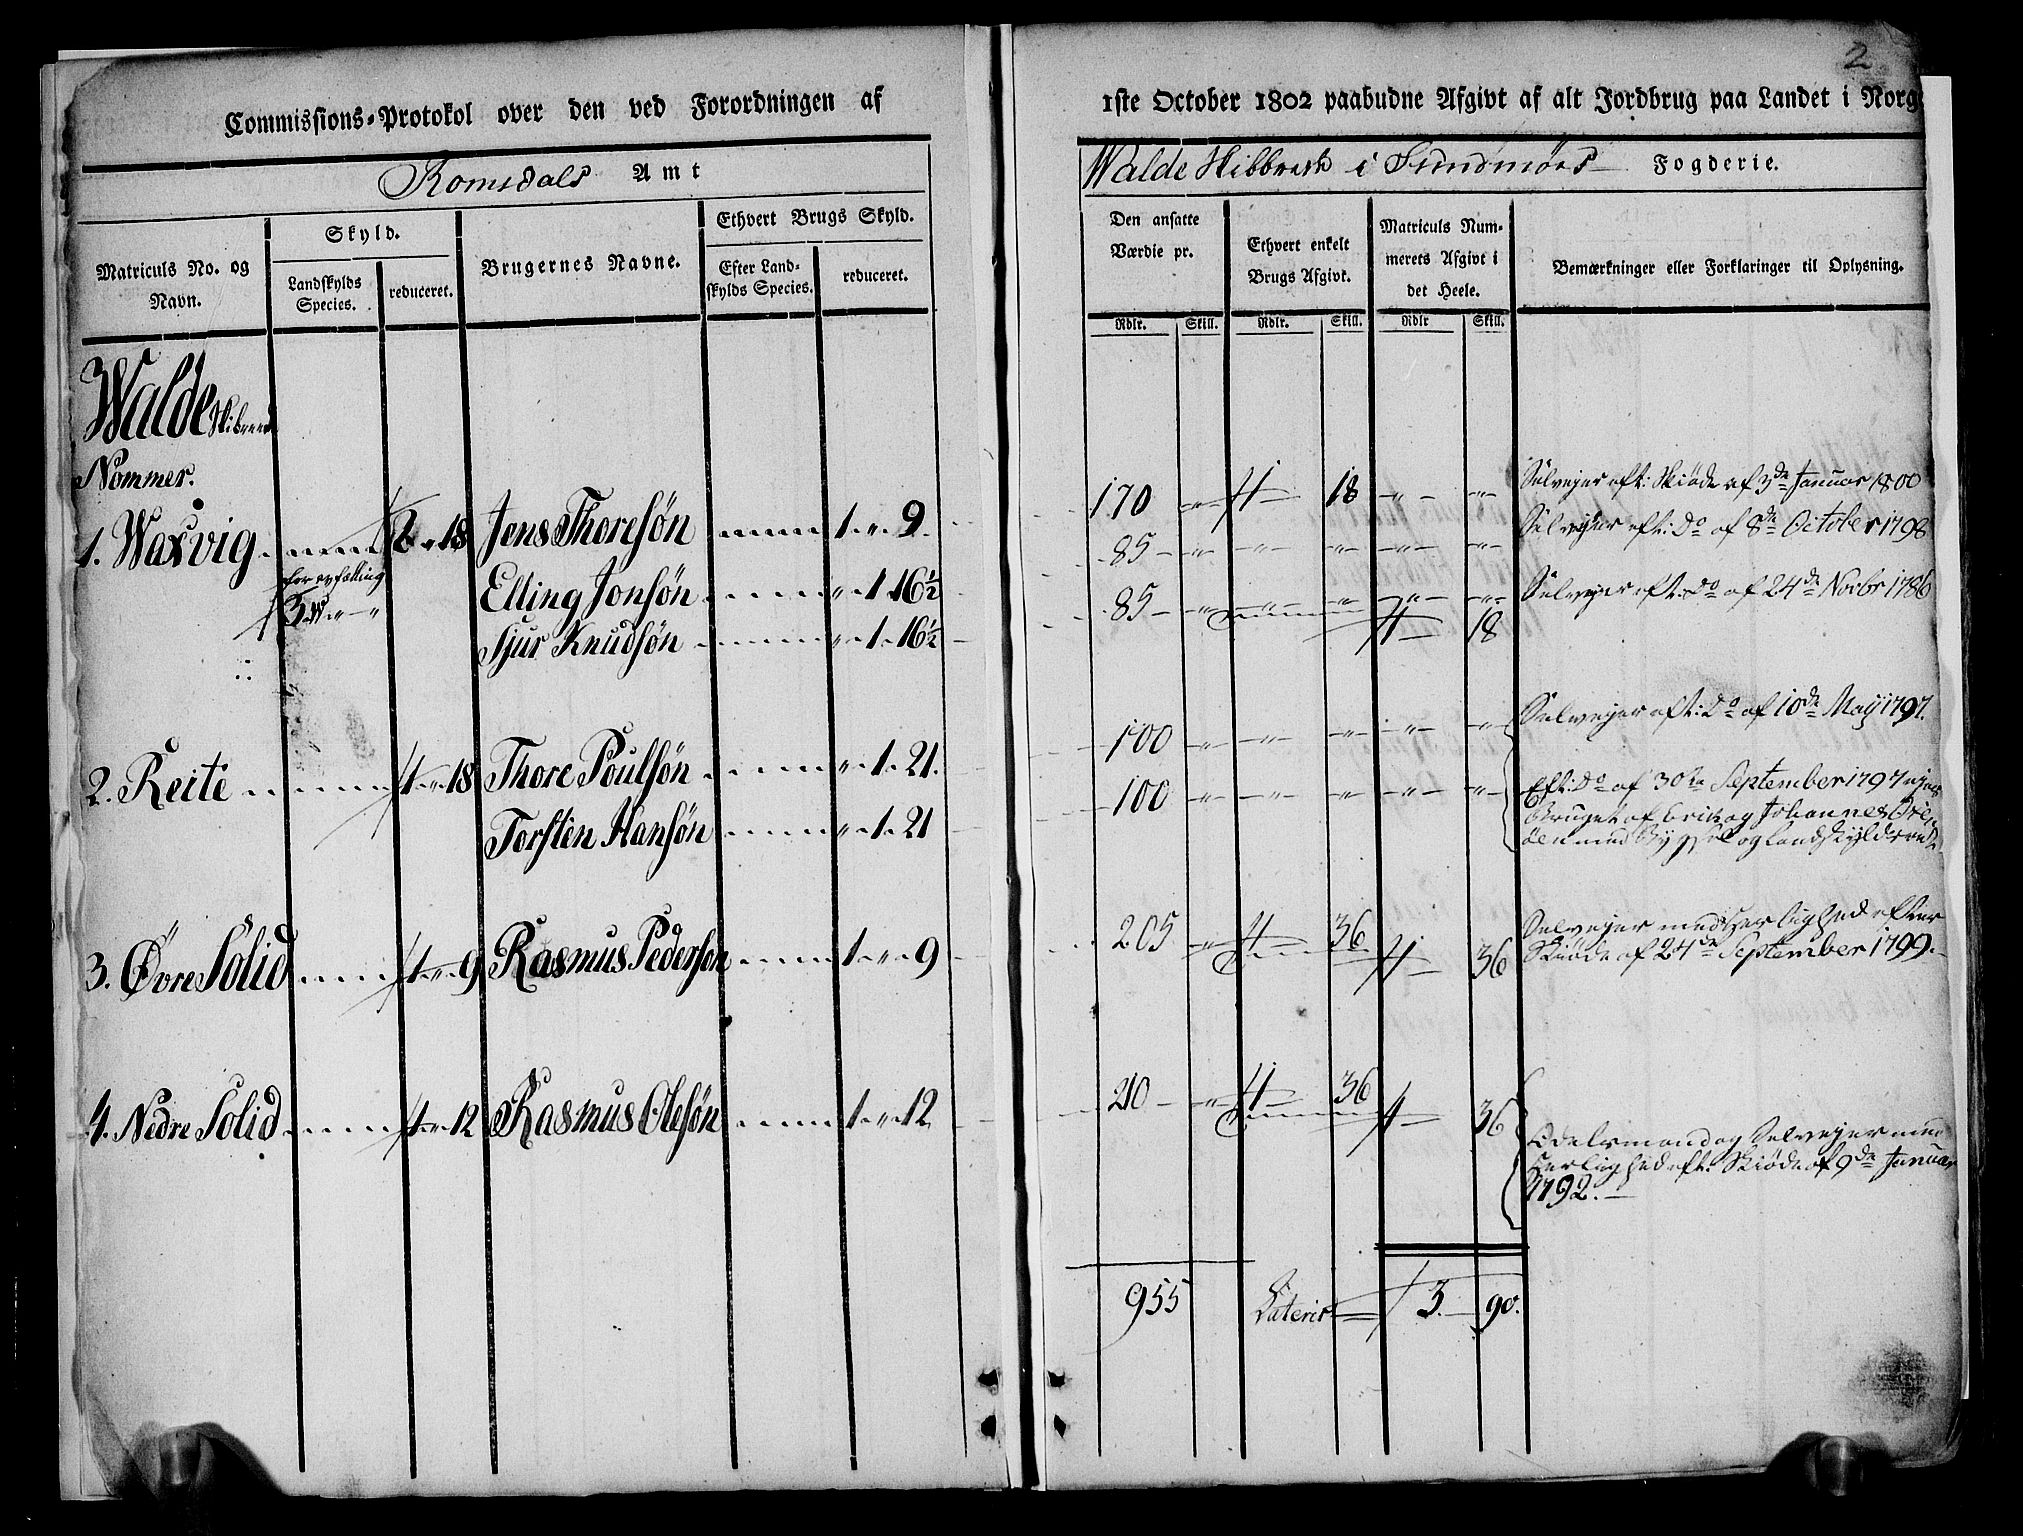 2
Commissions-Protokol over den ved Forordningen af
1ste October 1802 paabudne Afgivt af alt Jordbrug paa Landet i Norge
Romsdals Amt
Walde Skibbrede i Sundmørs Fogderie.
Matriculs No. og Navn.
Skyld.
Landskylds Species.
reduceret.
Brugernes Navne.
Ethvert Brugs Skyld.
Efter Landskylds Species.
reduceret.
Den ansatte Værdie pr.
Ethvert enkelt Brugs Afgivt.
Matriculs Nummerets Afgivt i det Heele.
Bemærkninger eller Forklaringer til Oplysning.
Rdlr. Skill. Rdlr. Skill. Rdlr Skill.
Walde
Nommer.
1. Waxvig 2 " 18 Jens Thoresøn 1 " 9 170 " 1 18 " "
Selvejer eft: Skiøde af 3de Januar 1800
3 W " "
Elling Jonsøn " 1 16½ 85 " " " " "
Selvejer eft: do af 8de October 1798
Sjur Knudsøn " 1 16½ 85 " " " " "
1 18
Selvejer eft: do af 24de Novbr 1786
2. Reite 1 " 18 Thore Poulsøn " 1 21. 100 " " " " "
Selvejer eft: do af 10de Maij 1797.
Torsten Hansøn " 1 21 100 " " " " "
Eft: do af 30te September 1797 ejes
Bruget af Erik og Johannes
med Bygsel og Landskyld
3. Øvre Solid 1 " 9 Rasmus Pedersøn 1 " 9 205 " 1 36 1 36
Selvejer med Herlighed efter
Skiøde af 24de September 1799.
4. Nedre Solid 1 " 12 Rasmus Olesøn 1 " 12 210 " 1 36 1 36
Odelsmand og Selvejer med
Herlighed eft: Skiøde af 9de Januar
1792.
955 Lateris 3. 90.